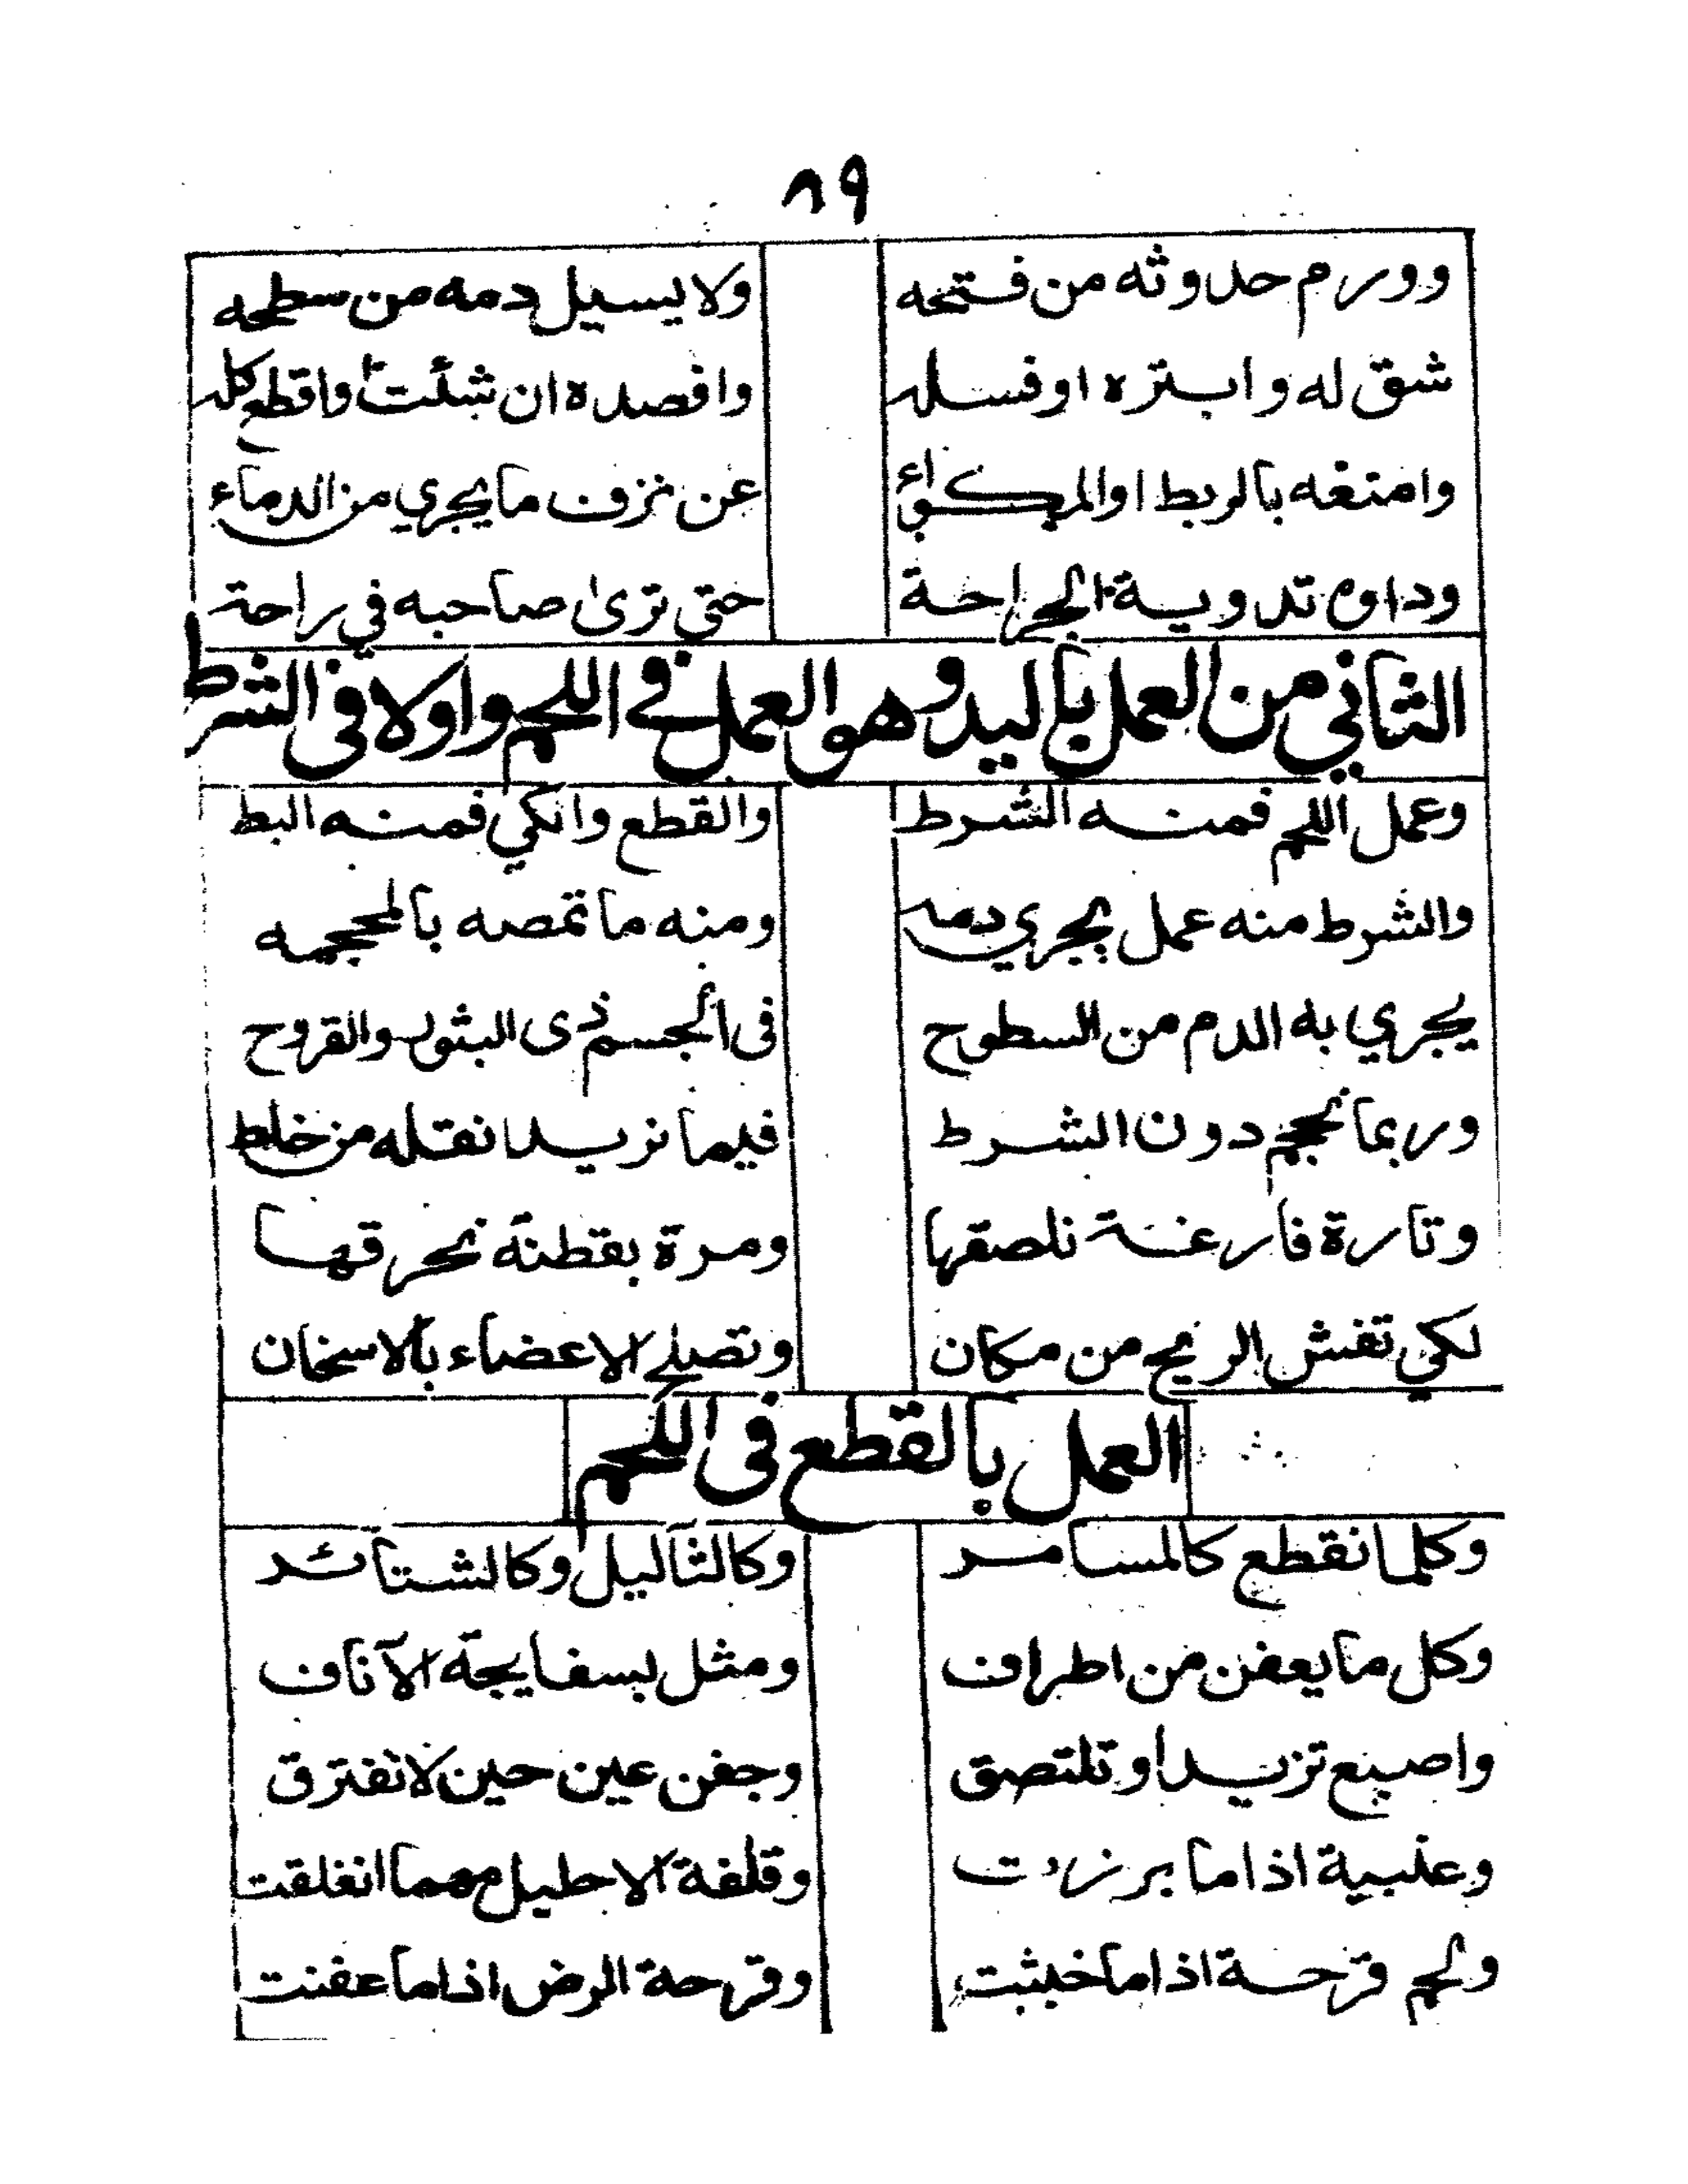 ٨٩
وورم حدوثه من فتحه ولا يسيل دمه من سطحه
شق له وابتره او فسله وافصده ان شئت واقطع كله
وامنعه بالربط او المكواء عن نزف ما يجري من الدماء
وداوه تدوية الجراحة حتي ترى صاحبه في راحة
الثاني من العمل باليد وهو العمل في اللحم واولا في الشرط
وعمل اللحم فمنه الشرط والقطع والكي فمنه البط
والشرط منه عمل يجري دمه ومنه ما تمصه بالمحجمه
يجري به الدم من السطوح في الجسم ذى البثور والقروح
وربما نحجم دون الشرط فيما نريد انقله من خلط
وتارة فارغة نلصقها ومرة بقطنة نحرقها
لكي تفش الريح من مكان وتصلح الاعضاء بالاسخان
العمل بالقطع فى اللحم
وكلما نقطع كالمسامر وكالثآليل وكالشتائر
وكل ما يعفن من اطراف ومثل بسفايجة الآناف
واصبع تزيد او تلتصق وجفن عين حين لا تفترق
وعلبية اذا ما برزت وقلفة الاحليل مهما انغلقت
ولحم قرحة اذا ما خبثت وقرحة الرض اذا ما عفنت